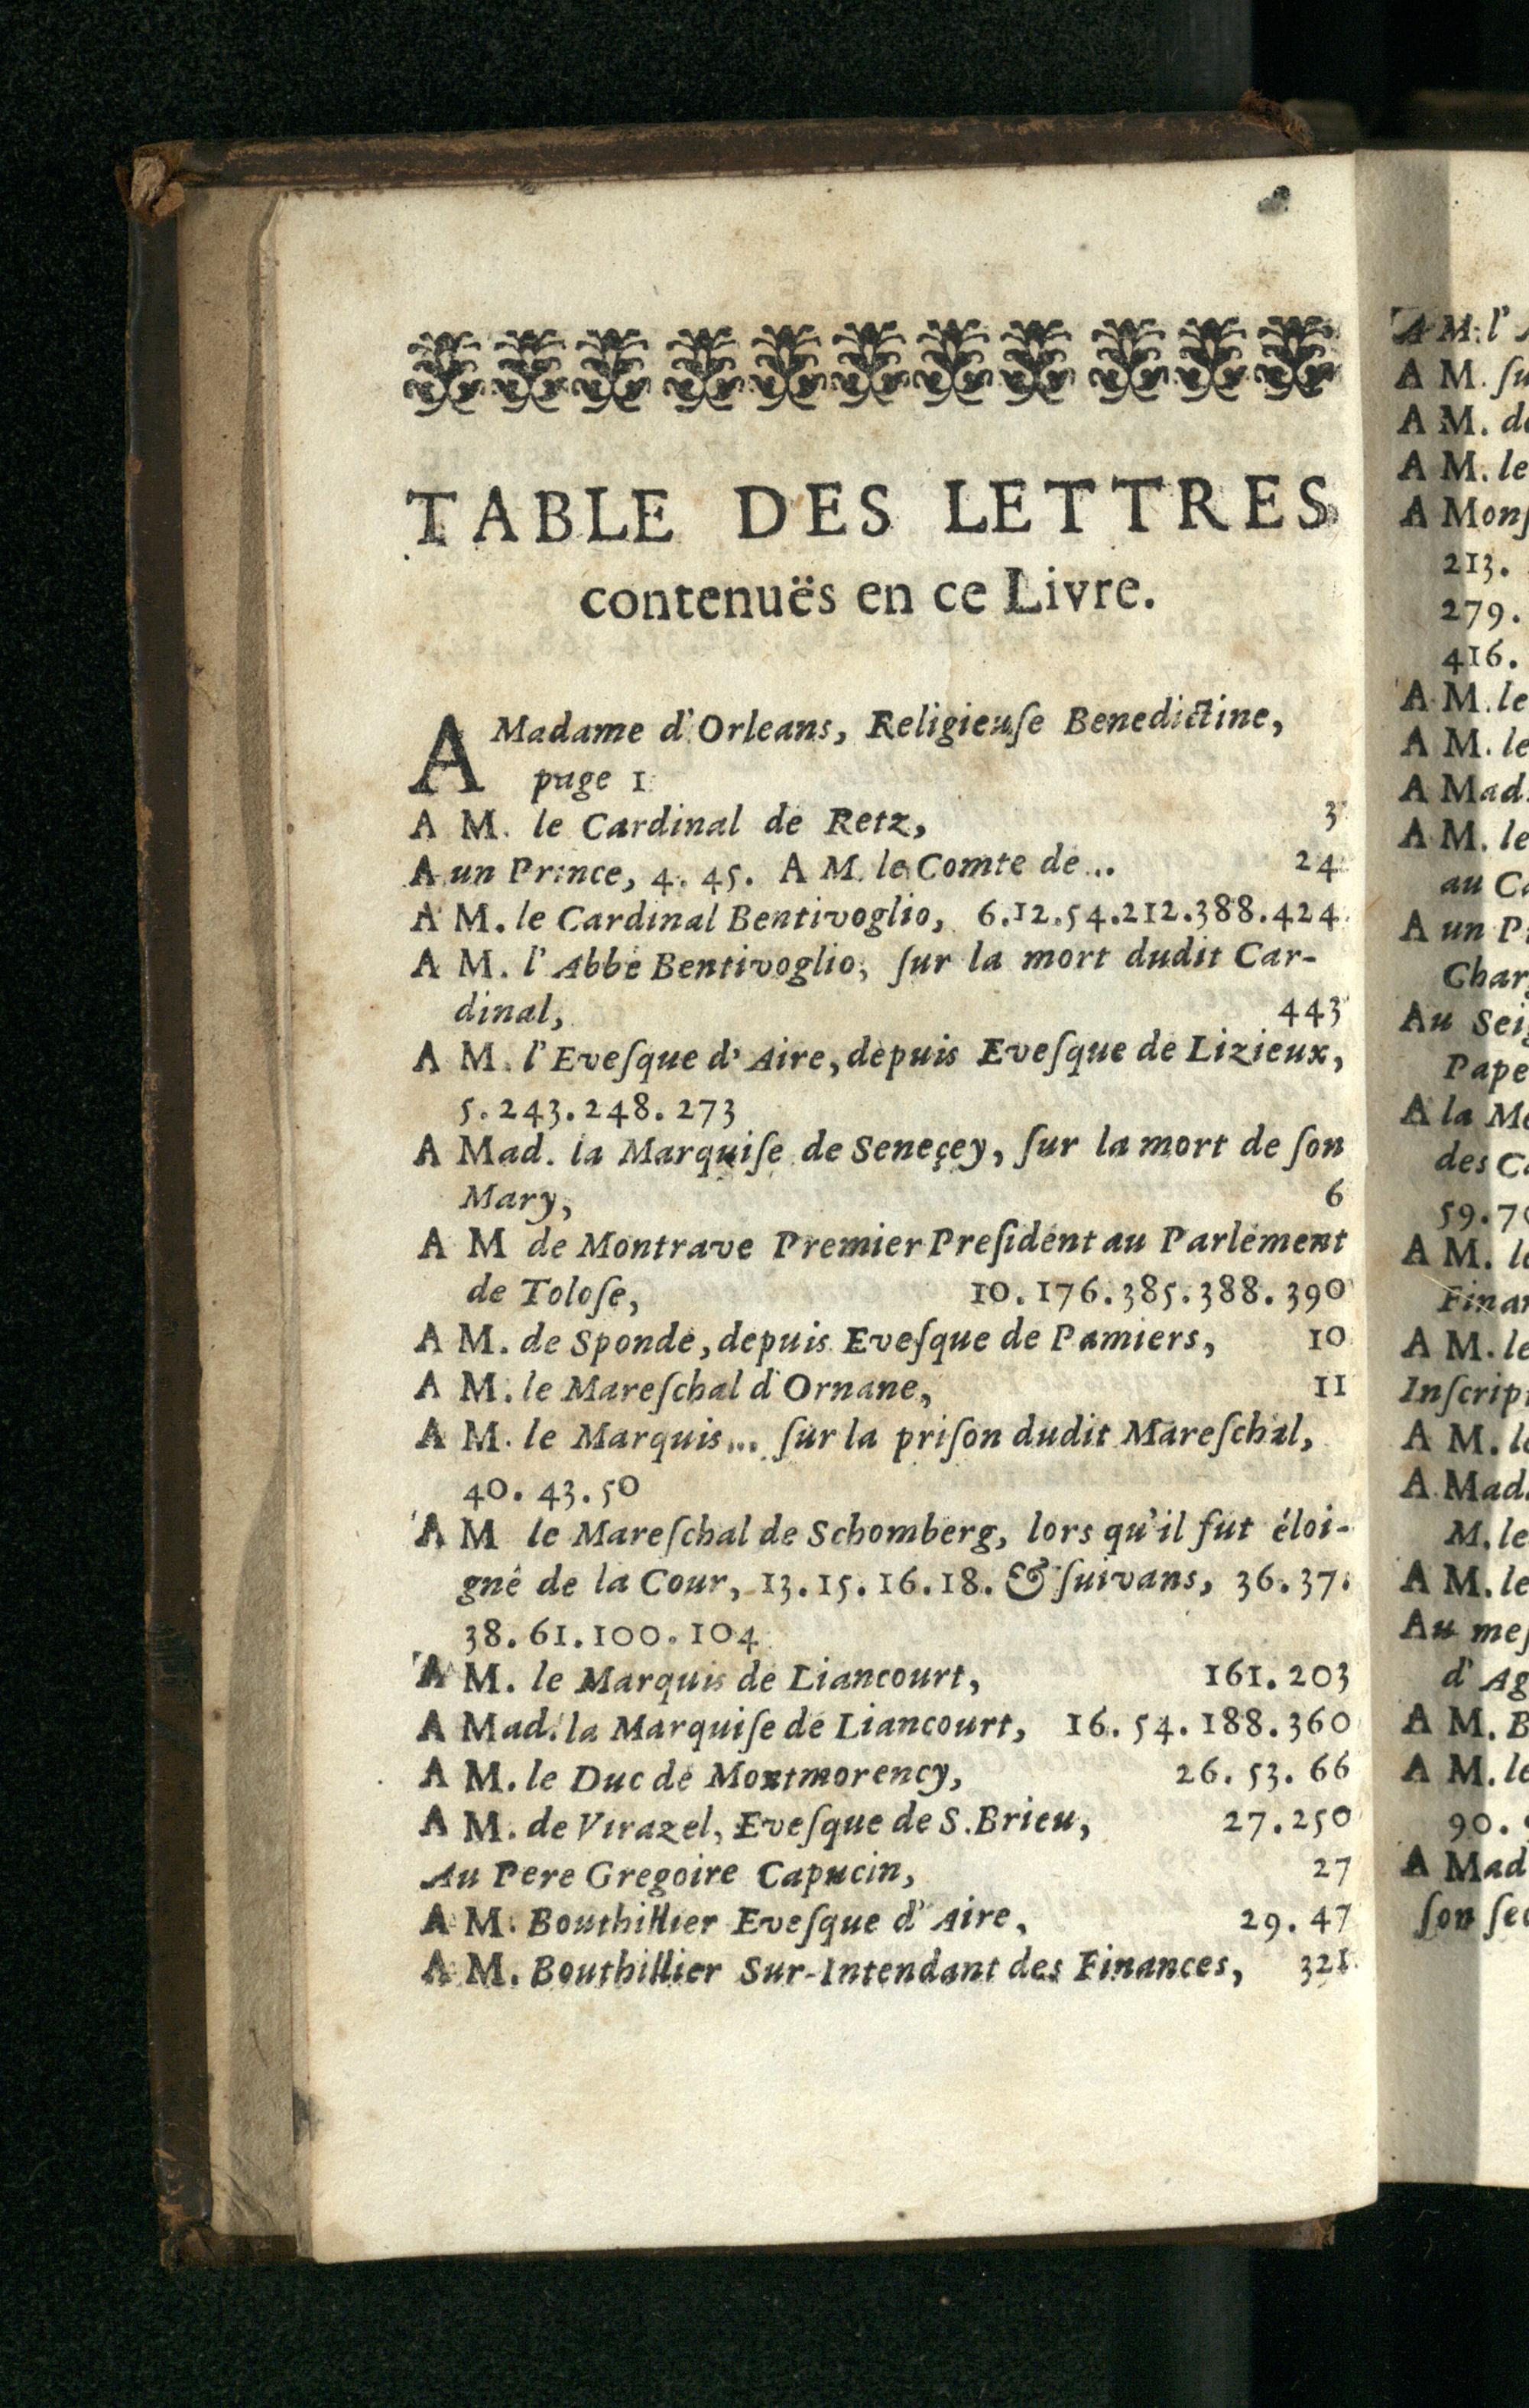 TABLE DES LETTRES
contenuës en ce Livre.
A Madame d'Orleans, Religieuſe Benedictine,
page 1
A M. le Cardinal de Retz, 3
A un Prince, 4. 45. A M. le Comte de... 24
A M. le Cardinal Bentivoglio, 6.12.54.212.388.424
A M. l'Abbé Bentivoglio, ſur la mort dudit Car-
dinal, 443
A M. l'Eveſque d'Aire, depuis Eveſque de Lizieux,
5.243.248.273
A Mad. la Marquiſe de Seneçey, ſur la mort de ſon
Mary, 6
A M de Montrave Premier Preſident au Parlement
de Toloſe, 10.176.385.388.390
A M. de Sponde, depuis Eveſque de Pamiers, 10
A M. le Mareſchal d'Ornane, 11
A M. le Marquis... ſur la priſon dudit Mareſchal,
40. 43. 50
A M le Mareſchal de Schomberg, lors qu'il fut éloi-
gné de la Cour, 13.15.16.18. & ſuivans, 36.37.
38.61.100.104
A M. le Marquis de Liancourt, 161.203
A Mad. la Marquiſe de Liancourt, 16.54.188.360
A M. le Duc de Montmorency, 26. 53. 66
A M. de Virazel, Eveſque de S. Brieu, 27.250
Au Pere Gregoire Capucin, 27
A M. Bouthillier Eveſque d'Aire, 29. 47
A M. Bouthillier Sur-Intendant des Finances, 321
A M. l'
A M.
A M.
A M. le
A
213.
279.
416.
A M. le
A M. le
A Mad.
A M. le
au
A un
Au
Pape
A la
des
59.
A M.
A M. le
A M.
A Mad.
M. le
A M. le
Au
d'
A M.
A M. le
90.
A Mad
ſon